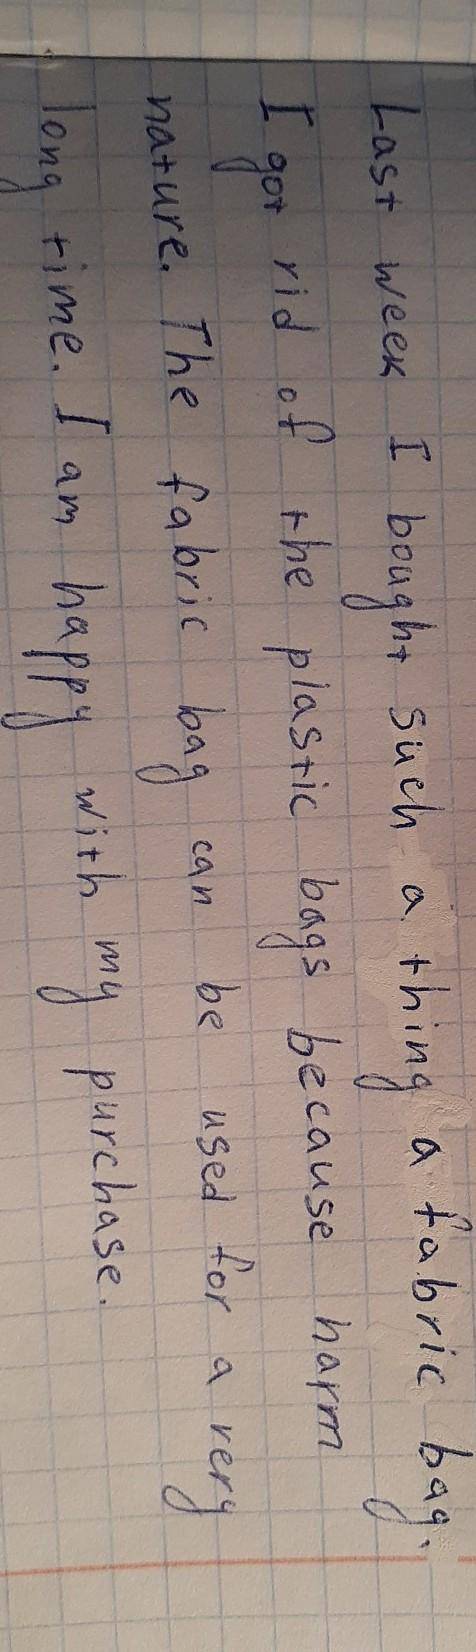 Last week I bought such a thing a fabric bag.
I got rid of the plastic bags because harm
nature. The fabric bag can be used for a very
long time. I am happy with my purchase.